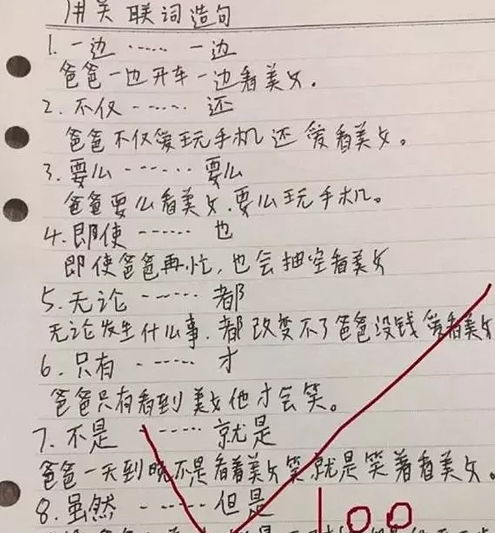 用关联词造句
1. 一边 ····· 一边
爸爸一边开车一边看美女.
2. 不仅 ····· 还
爸爸不仅爱玩手机还爱看美女。
3. 要么 ······ 要么
爸爸要么看美女.要么玩手机。
4. 即使 ······ 也
即使爸爸再忙,也会抽空看美女
5. 无论 ····· 都
无论发生什么事.都改变不了爸爸没钱爱看美女
6. 只有 ····· 才
爸爸只有看到美女他才会笑。
7. 不是 ····· 就是
爸爸一天到晚不是看着美女笑就是笑着看美女。
8. 虽然 ····· 但是
100